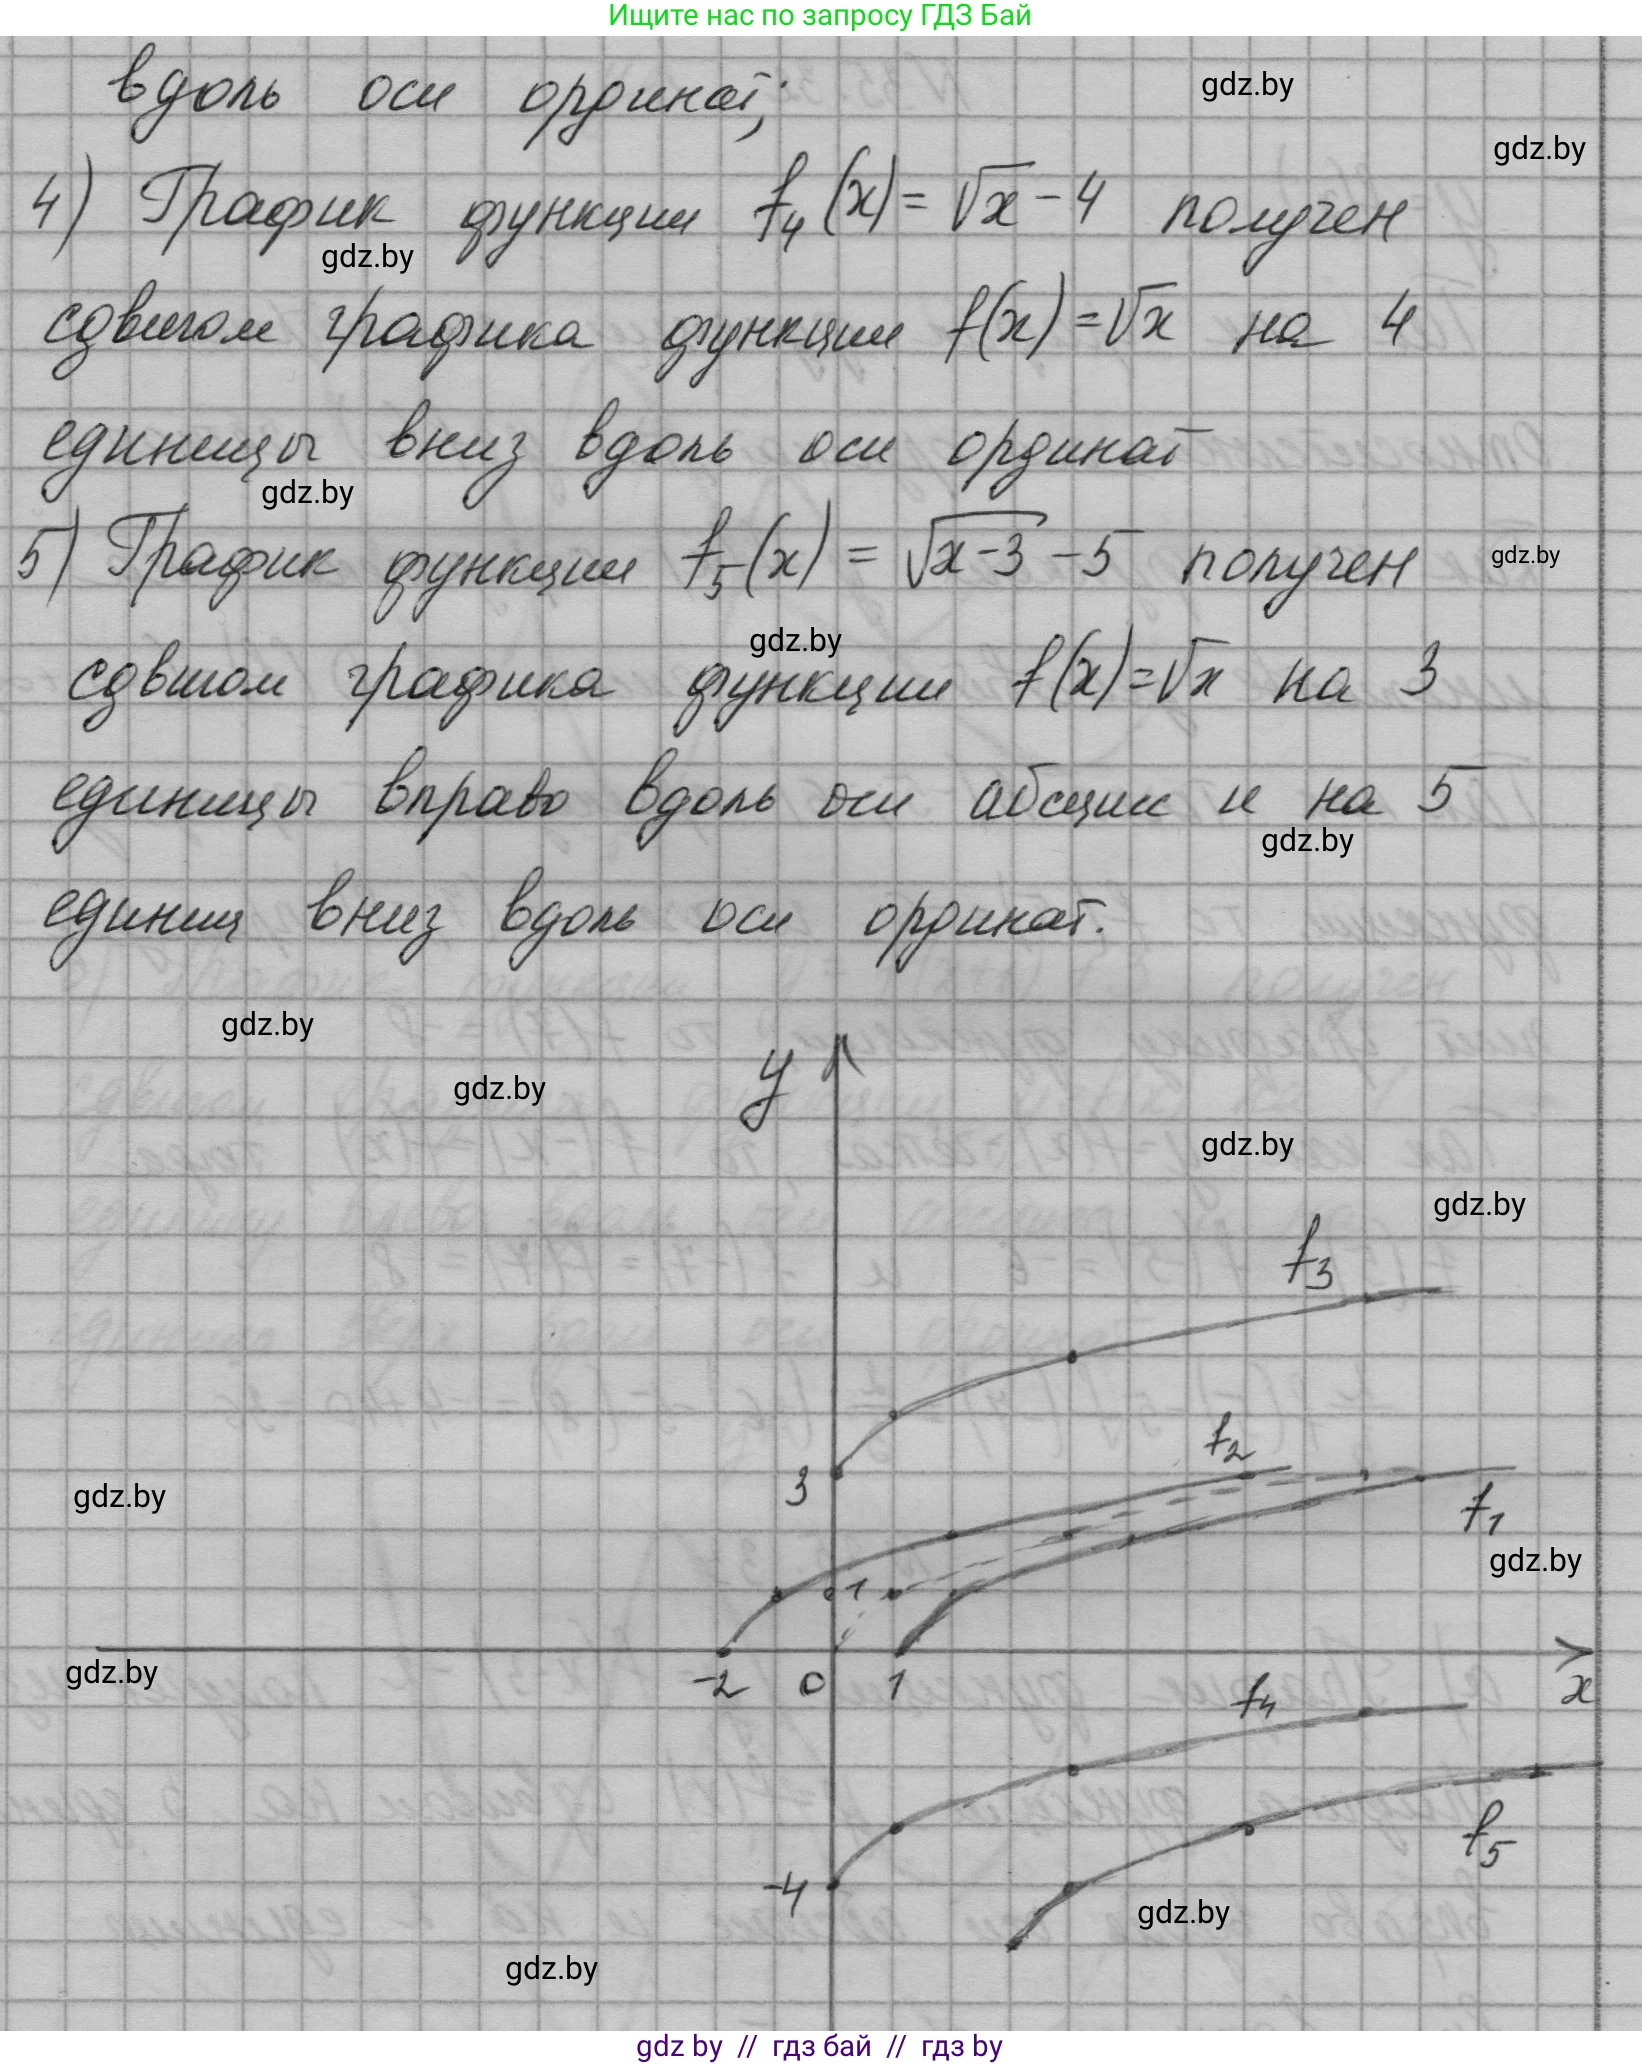 Ищите нас по запросу ГДЗ Бай
вдоль оси ординат;
gdz.by
gdz.by
4) График функции f₄(x) = √x - 4 получен
gdz.by
сдвигом графика функции f(x) = √x на 4
единицы вниз вдоль оси ординат
gdz.by
5) График функции f₅(x) = √(x-3) - 5 получен
gdz.by
gdz.by
сдвигом графика функции f(x) = √x на 3
единицы вправо вдоль оси абсцисс и на 5
gdz.by
единиц вниз вдоль оси ординат.
gdz.by
y
gdz.by
gdz.by
gdz.by
f₃
f₂
3
gdz.by
f₁
gdz.by
1
gdz.by
-2 0 1 x
f₄
f₅
-4
gdz.by
gdz.by
gdz by // гдз бай // гдз by